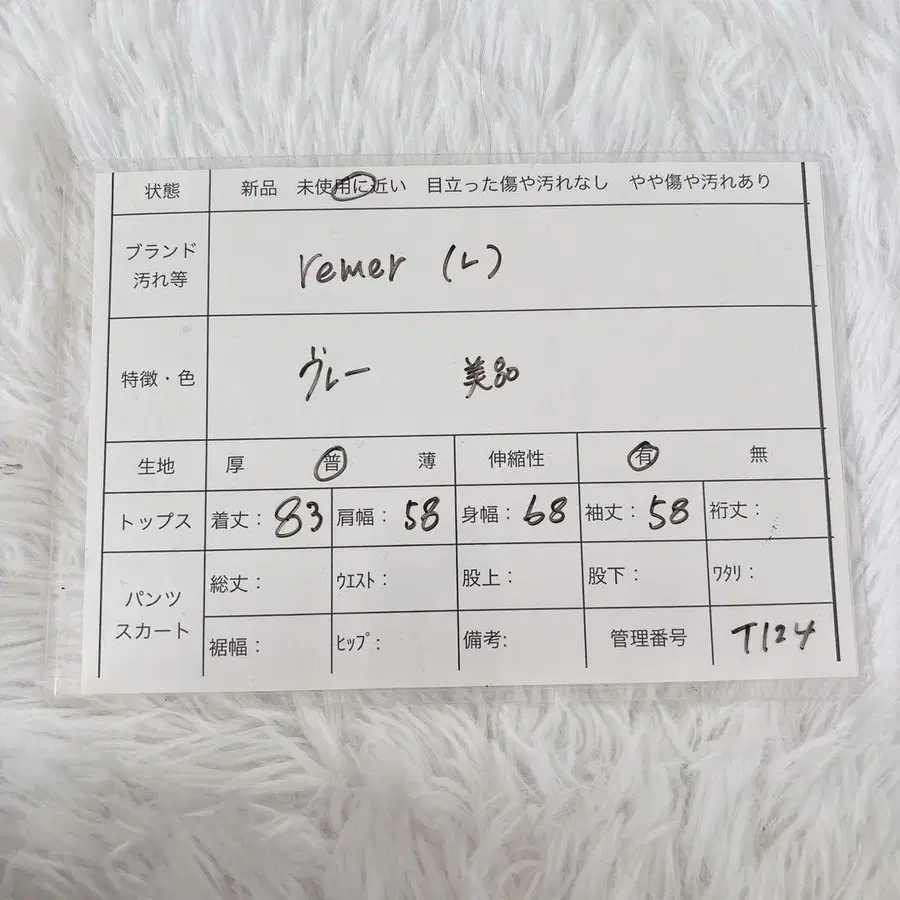 状態 新品 未使用に近い 目立った傷や汚れなし やや傷や汚れあり
ブランド
汚れ等
remer (L)
特徴・色 グレー 美品
生地 厚 普 薄 伸縮性 有 無
トップス 着丈: 83 肩幅: 58 身幅: 68 袖丈: 58 裄丈:
パンツ
スカート
総丈: ウエスト: 股上: 股下: ワタリ:
裾幅: ヒップ: 備考: 管理番号 T124